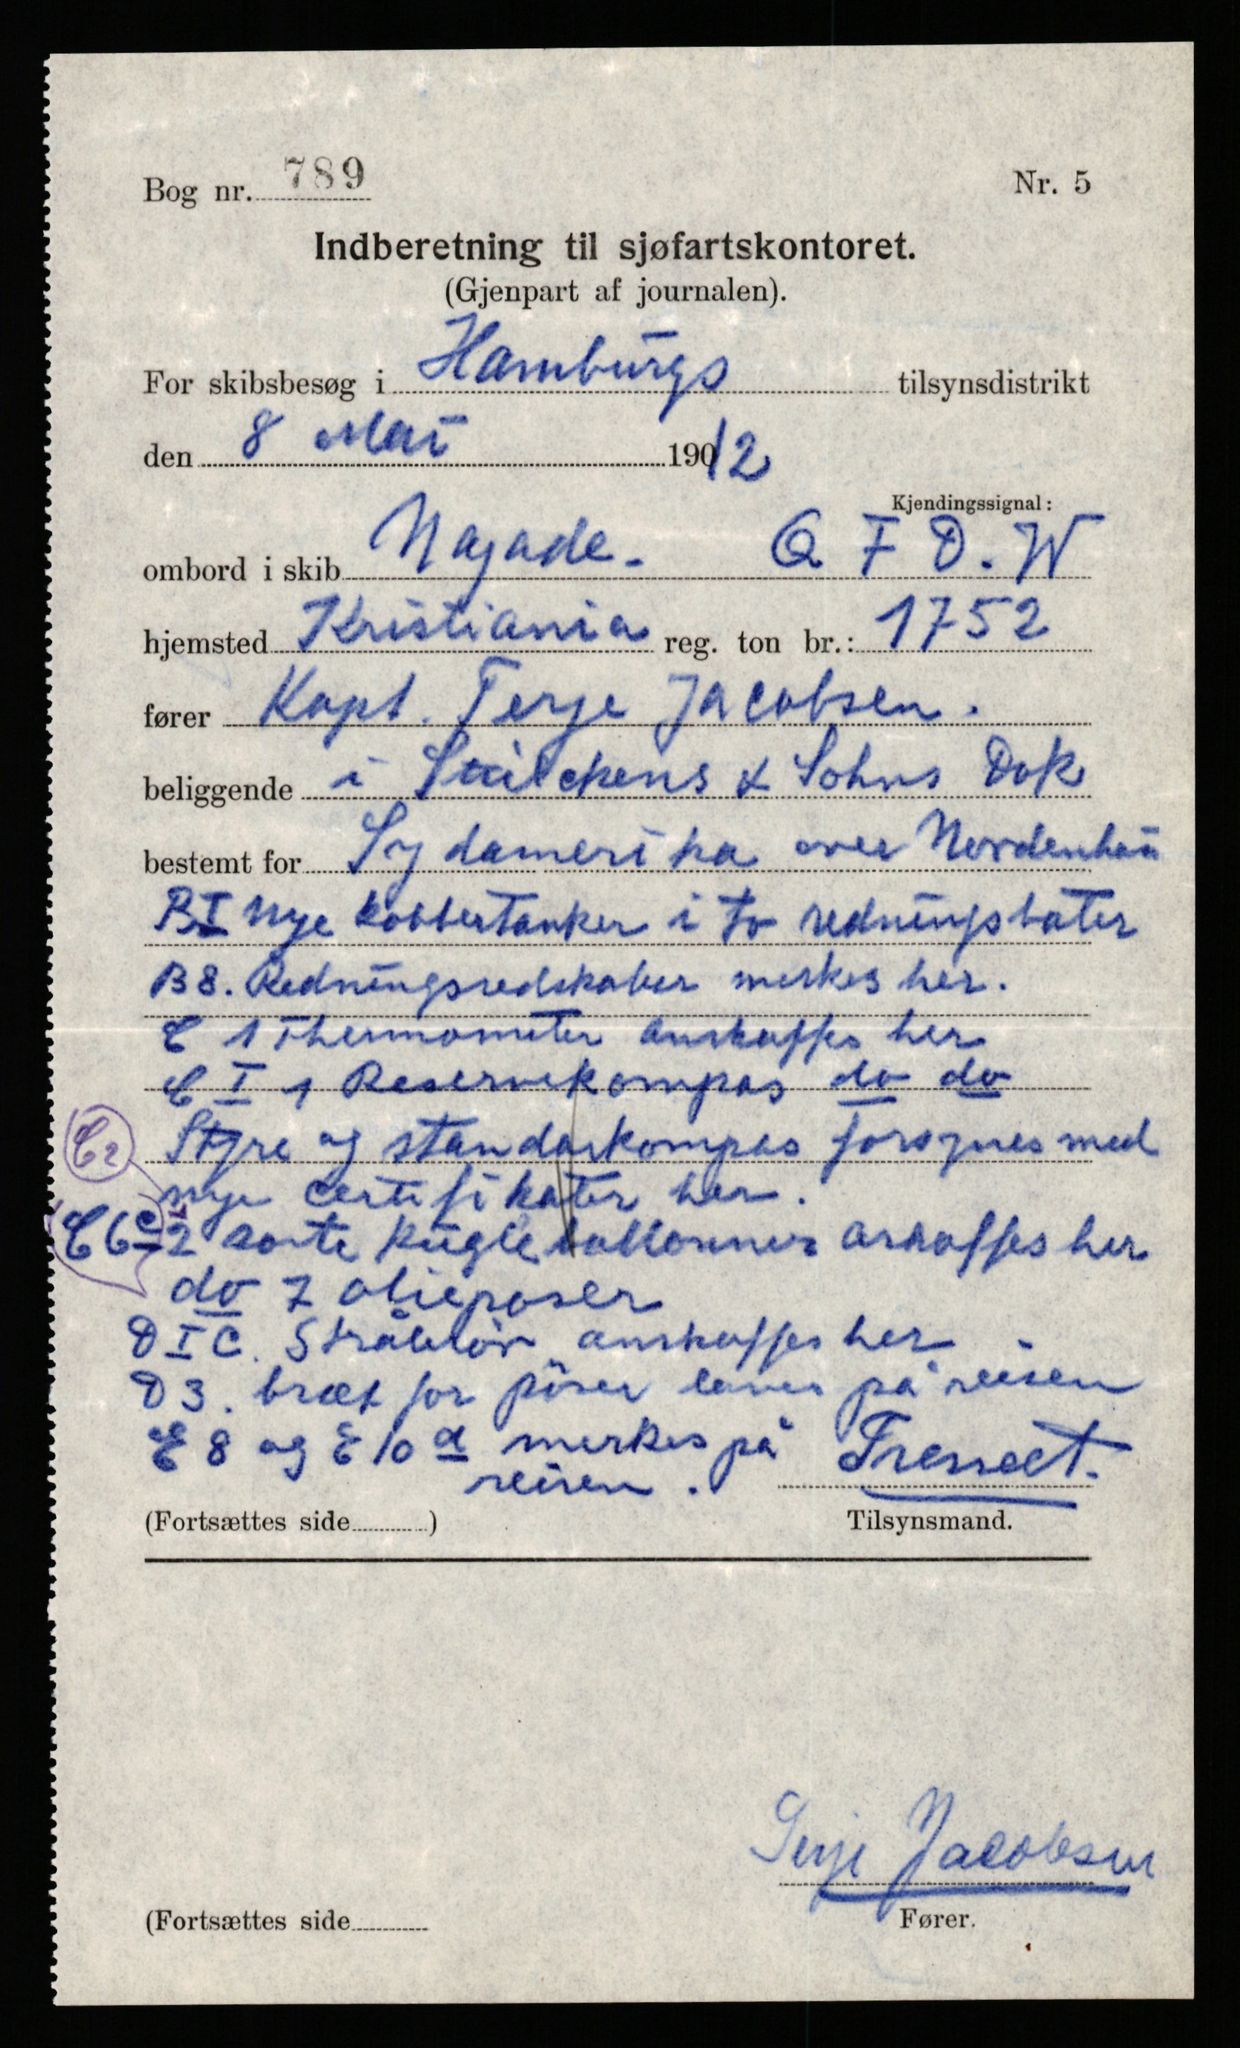 Bog nr. 789 Nr. 5
Indberetning til sjøfartskontoret.
(Gjenpart af journalen).
For skibsbesøg i Hamburgs tilsynsdistrikt
den 8 Mai 190 12
Kjendingssignal:
ombord i skib Najade. Q F D. W
hjemsted Kristiania reg. ton br.: 1752
fører Kapt. Terje Jacobsen.
beliggende i Stülckens & Sohns Dok
bestemt for Sydamerika over Nordenham
B I Nye kobbertanker i to redningsbåter
B 8. Redningsredskaber merkes her.
C 1 Thermometer anskaffes her
C I 1 Reservekompas do do
C 2 Styre og standarkompas forsynes med
nye certifikater her.
C 6 c 2 sorte kugle ballonner anskaffes her
do 7 olieposer
D I C. Strålrør anskaffes her
D 3. bræt for pöser laves på reisen
E 8 og E 10 a merkes på
reisen.
(Fortsættes side ) Tilsynsmand.
Terje Jacobsen
(Fortsættes side Fører.